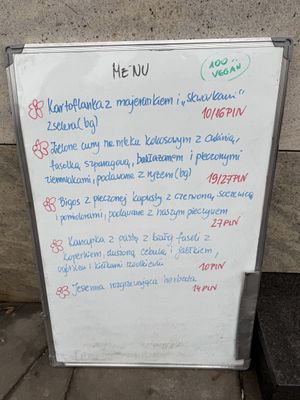 MENU
100% VEGAN
Kartoflanka z majerankiem i „skwarkami"
z selera (bg)
10/16 PLN
Zielone curry na mleku kokosowym z cukinią,
fasolką szparagową, bakłażanem i pieczonymi
ziemniakami, podawane z ryżem (bg)
19/27 PLN
Bigos z pieczonej kapusty z czerwoną soczewicą
i pomidorami, podawane z naszym pieczywem
27 PLN
Kanapka z pastą z białej fasoli z
koperkiem, duszoną cebulą i jabłkiem,
ogórkiem i kiełkami rzodkiewki
10 PLN
Jesienna rozgrzewająca herbata
14 PLN